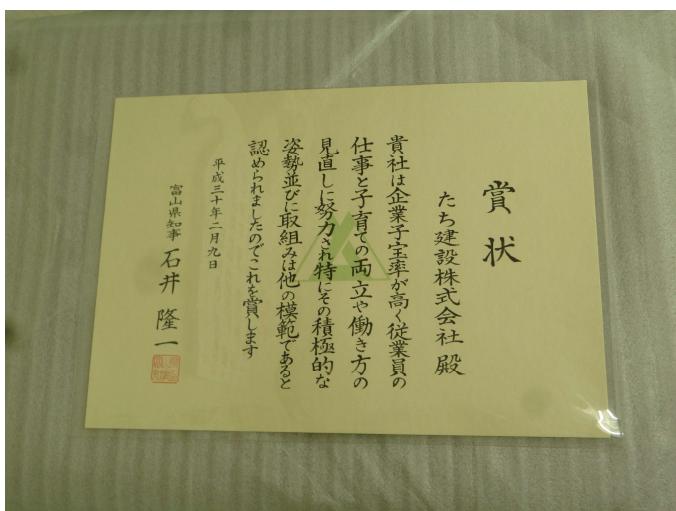 賞状
たち建設株式会社 殿
貴社は企業子宝率が高く従業員の
仕事と子育ての両立や働き方の
見直しに努力され特にその積極的な
姿勢並びに取組みは他の模範であると
認められましたのでこれを賞します
平成三十年二月九日
富山県知事 石井隆一